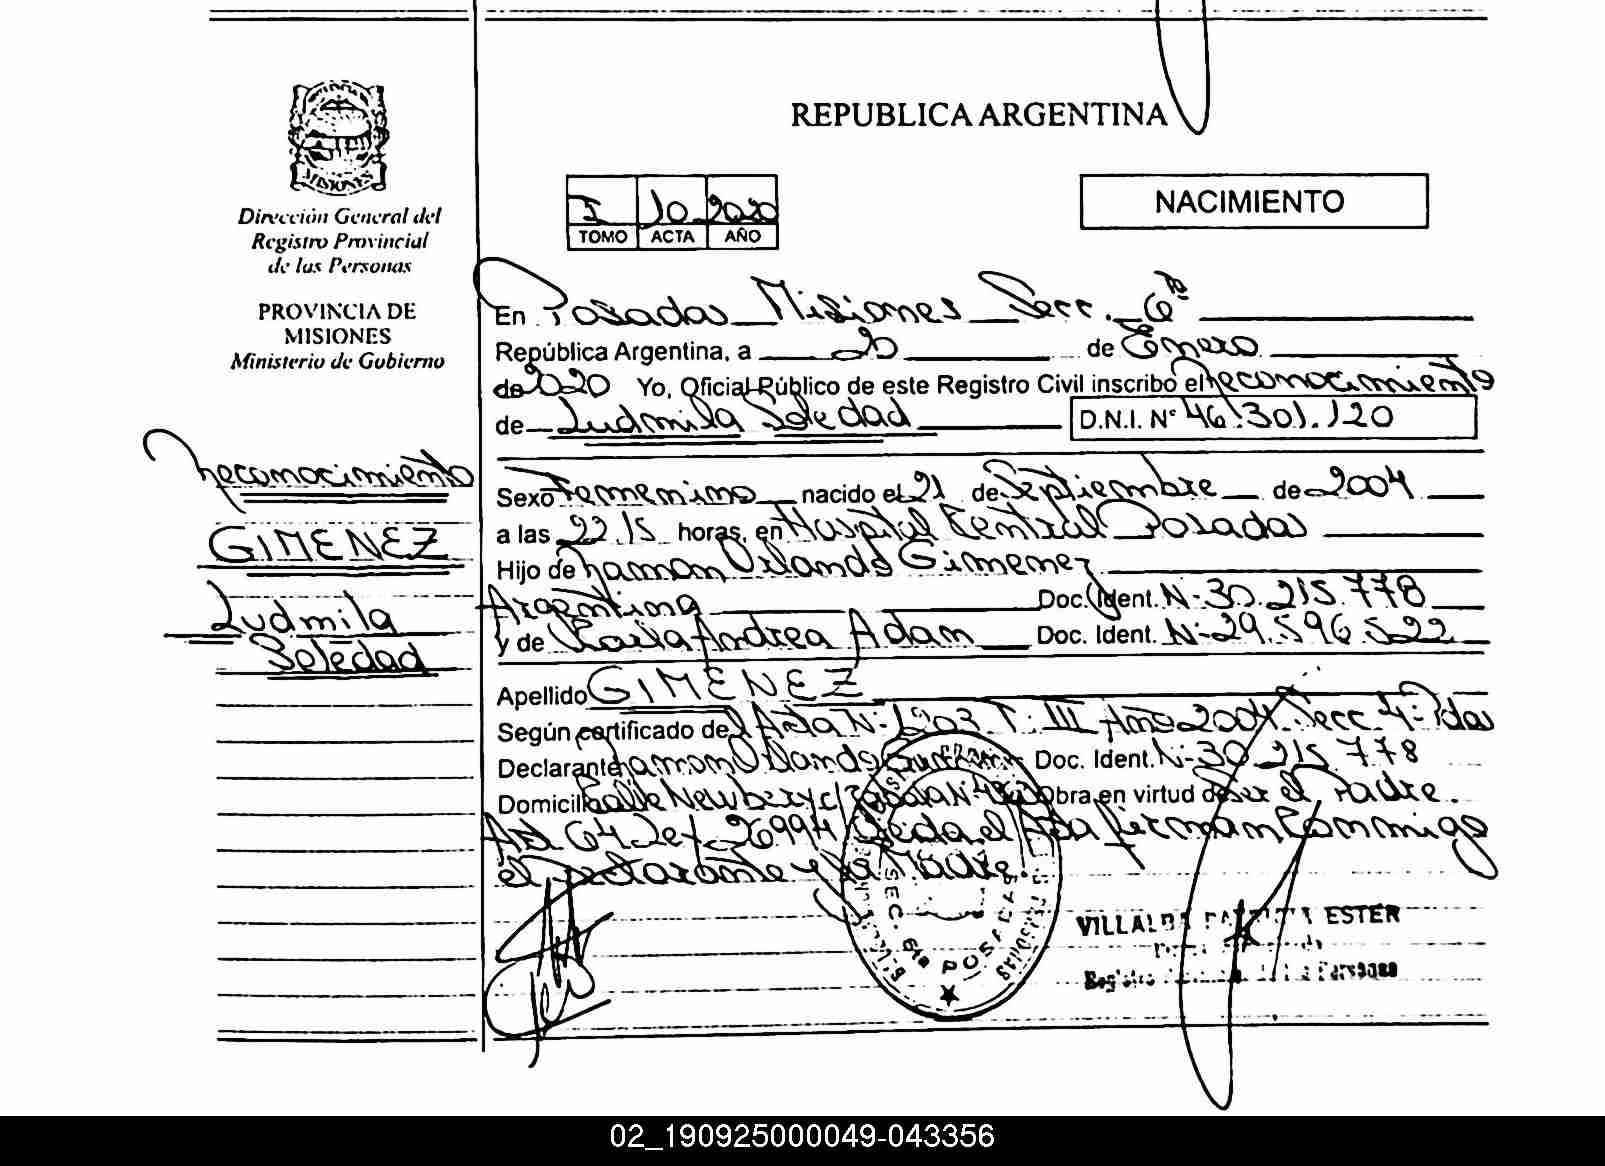 MISIONES
Dirección General del
Registro Provincial
de las Personas
PROVINCIA DE
MISIONES
Ministerio de Gobierno
Reconocimiento
GIMENEZ
Ludmila
Soledad
REPUBLICA ARGENTINA
NACIMIENTO
I 10 2020
TOMO ACTA AÑO
En Posadas Misiones Secc. 6ta
República Argentina, a 20 de Enero
de 2020 Yo, Oficial Público de este Registro Civil inscribo el Reconocimiento
de Ludmila Soledad D.N.I. N° 46.301.120
Sexo Femenino nacido el 21 de Septiembre de 2004
a las 22.15 horas, en Hospital Central Posadas
Hijo de Ramon Orlando Gimenez
Argentina Doc. Ident. N° 30.215.778
y de Andrea Adam Doc. Ident. N° 29.596.522
Apellido GIMENEZ
Según certificado del Acta N° 1203 T: III Año 2004 Secc 4° Pdas
Declarante Ramon Orlando Gimenez Doc. Ident. N° 30.215.778
Domicilio Calle Newbery c/ N° Obra en virtud de ser el Padre.
Art. 64 Ley 26994 Leida el Acta firman Conmigo
el Declarante y la Madre.
SEC. 6ta POSADAS
VILLALBA ESTER
Registro Personas
02_190925000049-043356